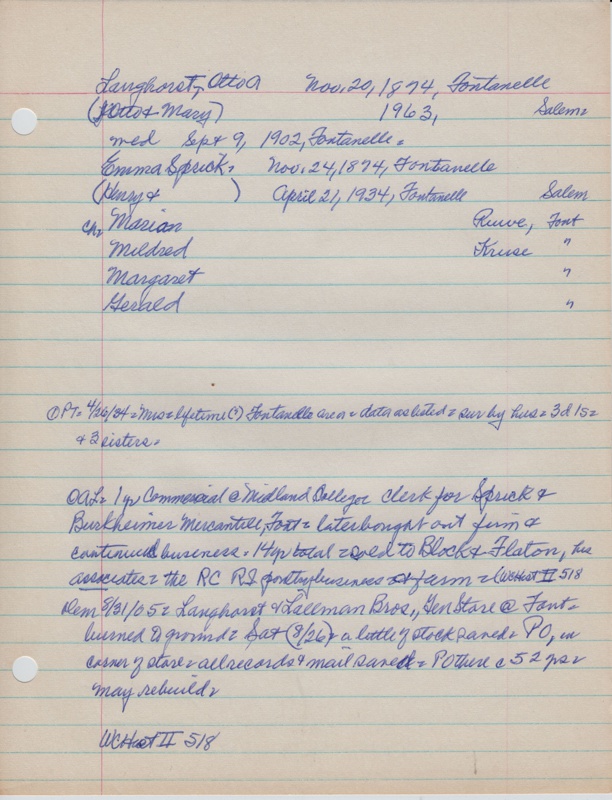 Langhorst, Otto A Nov. 20, 1874, Fontanelle
(Otto & Mary) 1963, Salem=
med Sept 9, 1902, Fontanelle=
Emma Sprick= Nov. 24, 1874, Fontanelle
(Henry & ) April 21, 1934, Fontanelle Salem
ch= Marian Ruwe, Font
Mildred Kruse "
Margaret "
Gerald "
OPT= 4/26/34= Mrs= lifetime(?) Fontanelle area= data as listed= sur by hus= 3d 1s=
& 3 sisters=
OAL= 1 yr Commercial @ Midland College= clerk for Sprick &
Burkheimer Mercantile, Font= later bought out firm &
continued business= 14 yr total = sold to Block & Flaton, his
associates= the RC RI business farm= WCHist II 518
Dem 8/31/05= Langhorst & Lallman Bros., Gen Store @ Font=
burned to ground= Sat (8/26)= a little of stock saved= PO, in
corner of store= all records & mail saved= PO there c 52 yrs=
may rebuild=
WCHist II 518